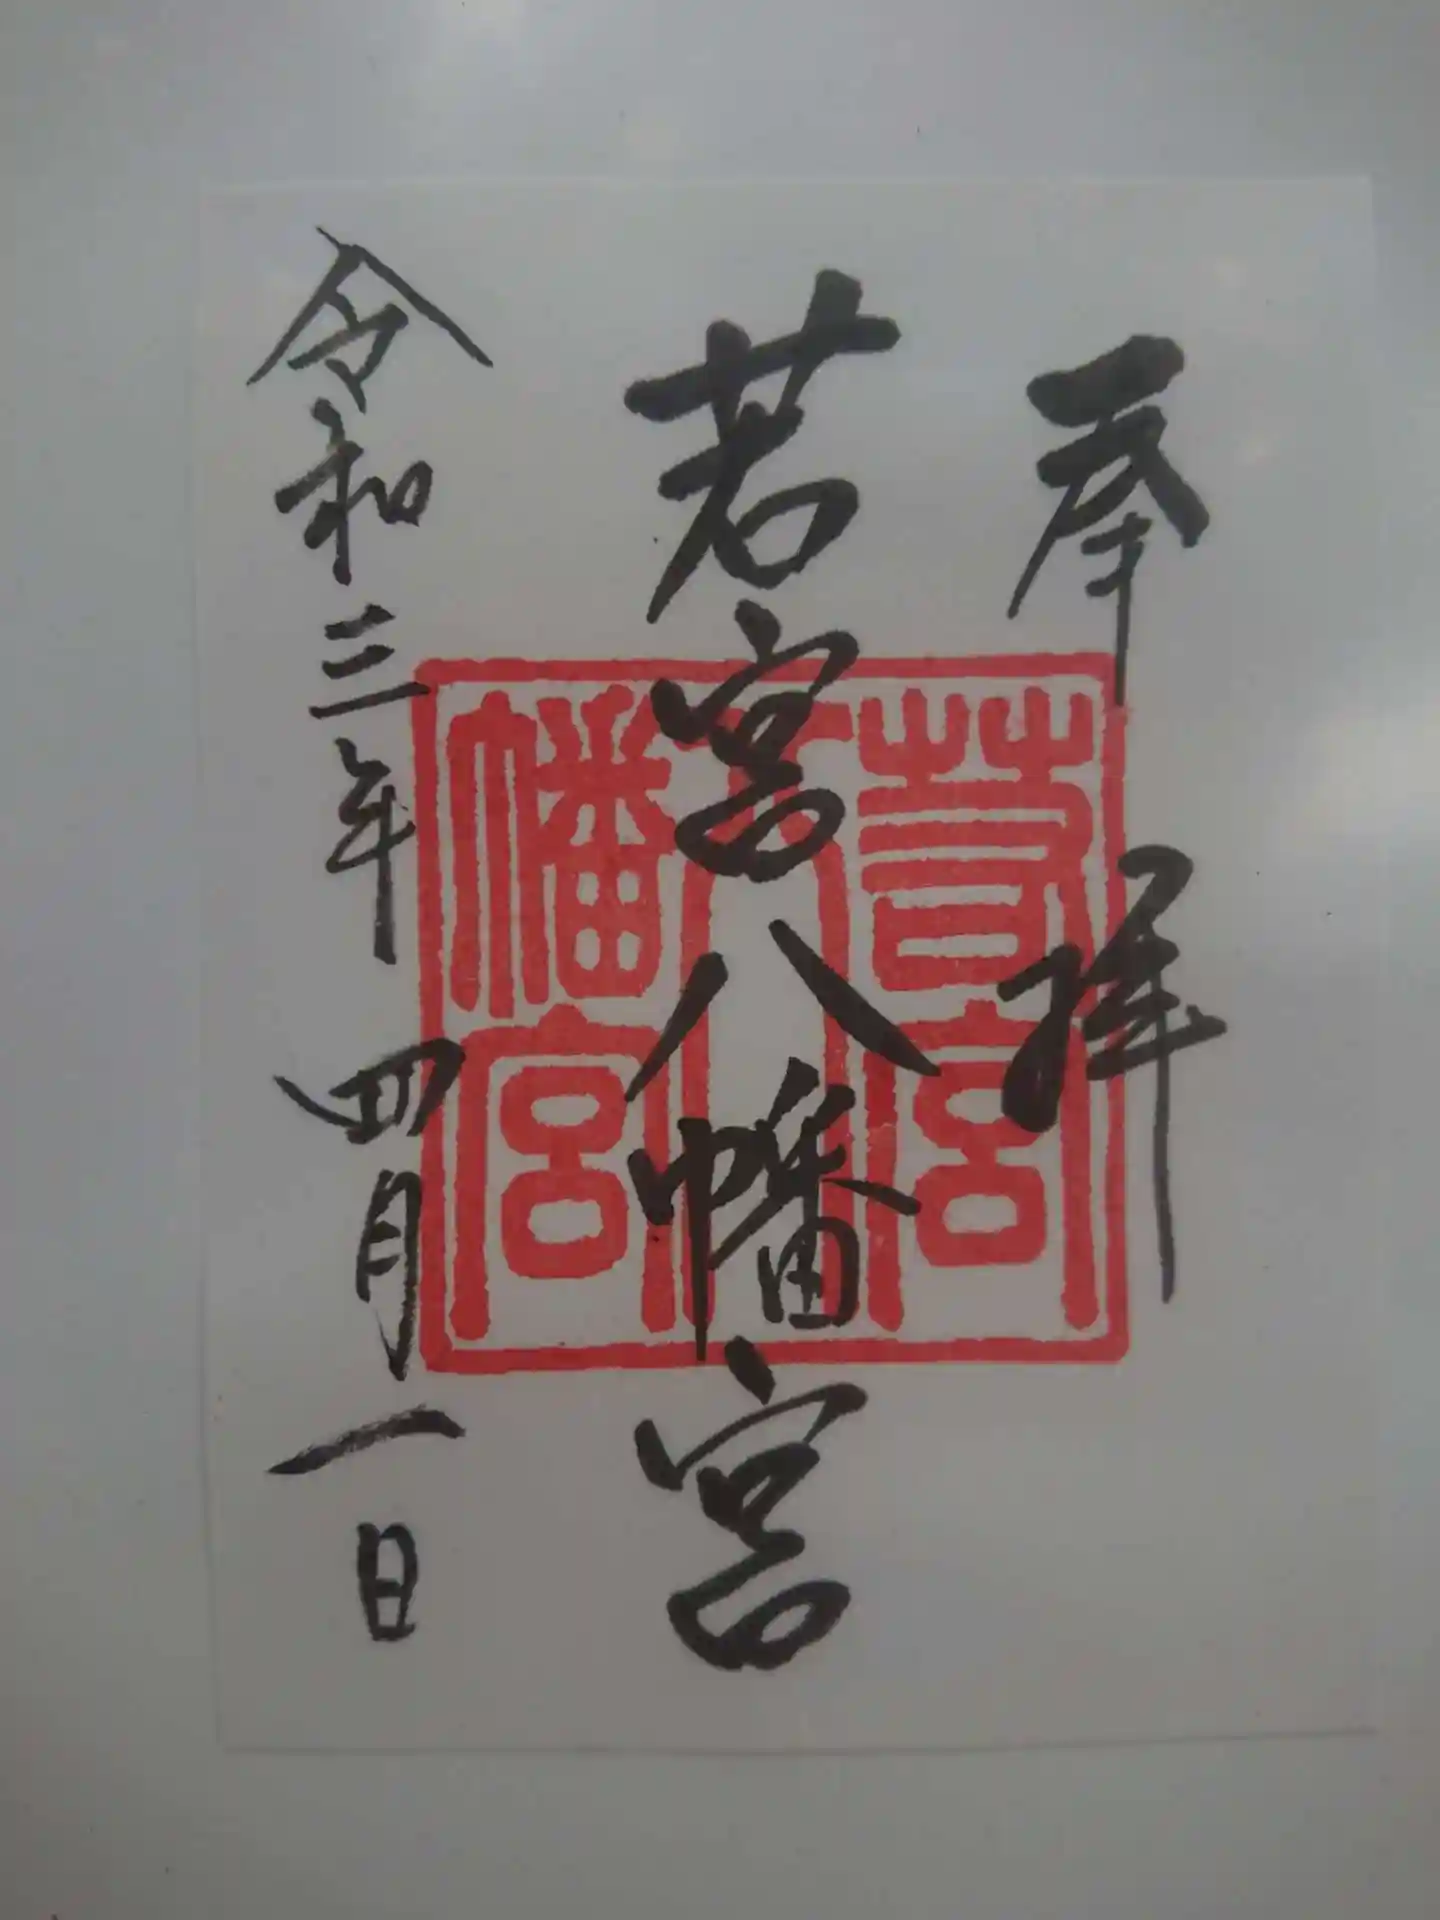 奉拝
若宮八幡宮
令和三年四月一日
若宮
八
幡宮